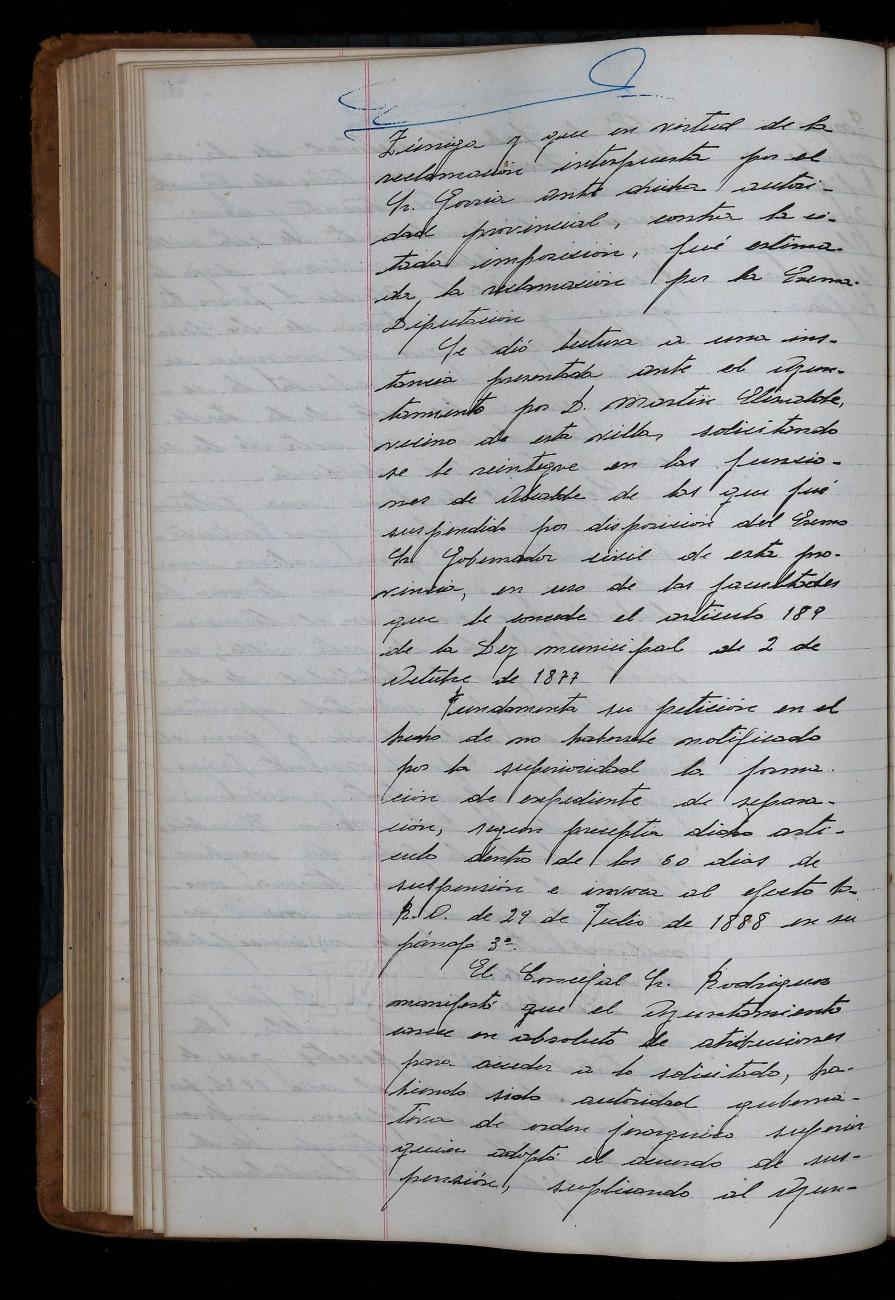 Zúniga y que en virtud de la
reclamación interpuesta por el
Sr. Govria ante dicha autori-
dad provincial, contra la ci-
tada imposicion, fué estima-
da, la reclamacion por la Exma.
Diputacion
Se dió lectura a una ins-
tancia presentada ante el Ayun-
tamiento por D. Martin Elizalde,
vecino de esta villa, solicitando
se le reintegre en las funcio-
nes de Alcalde de las que fué
suspendido por disposicion del Exmo
Sr. Gobernador civil de esta pro-
vincia, en uso de las facultades
que le concede el articulo 189
de la Ley municipal de 2 de
Octubre de 1877
Fundamenta su peticion en el
hecho de no habersele notificado
por la superioridad la forma
ción de expediente de separa-
ción, segun preceptua dicho arti-
culo dentro de los 60 dias de
suspensión e invoca al efecto la
R.O. de 29 de Julio de 1888 en su
párrafo 3º.
El Concejal Sr. Rodriguez
manifestó que el Ayuntamiento
carece en absoluto de atribuciones
para acceder a lo solicitado, ha-
biendo sido autoridad guberna-
tiva de orden jerarquico superior
quien adoptó el acuerdo de sus-
pensión, suplicando al Ayun-